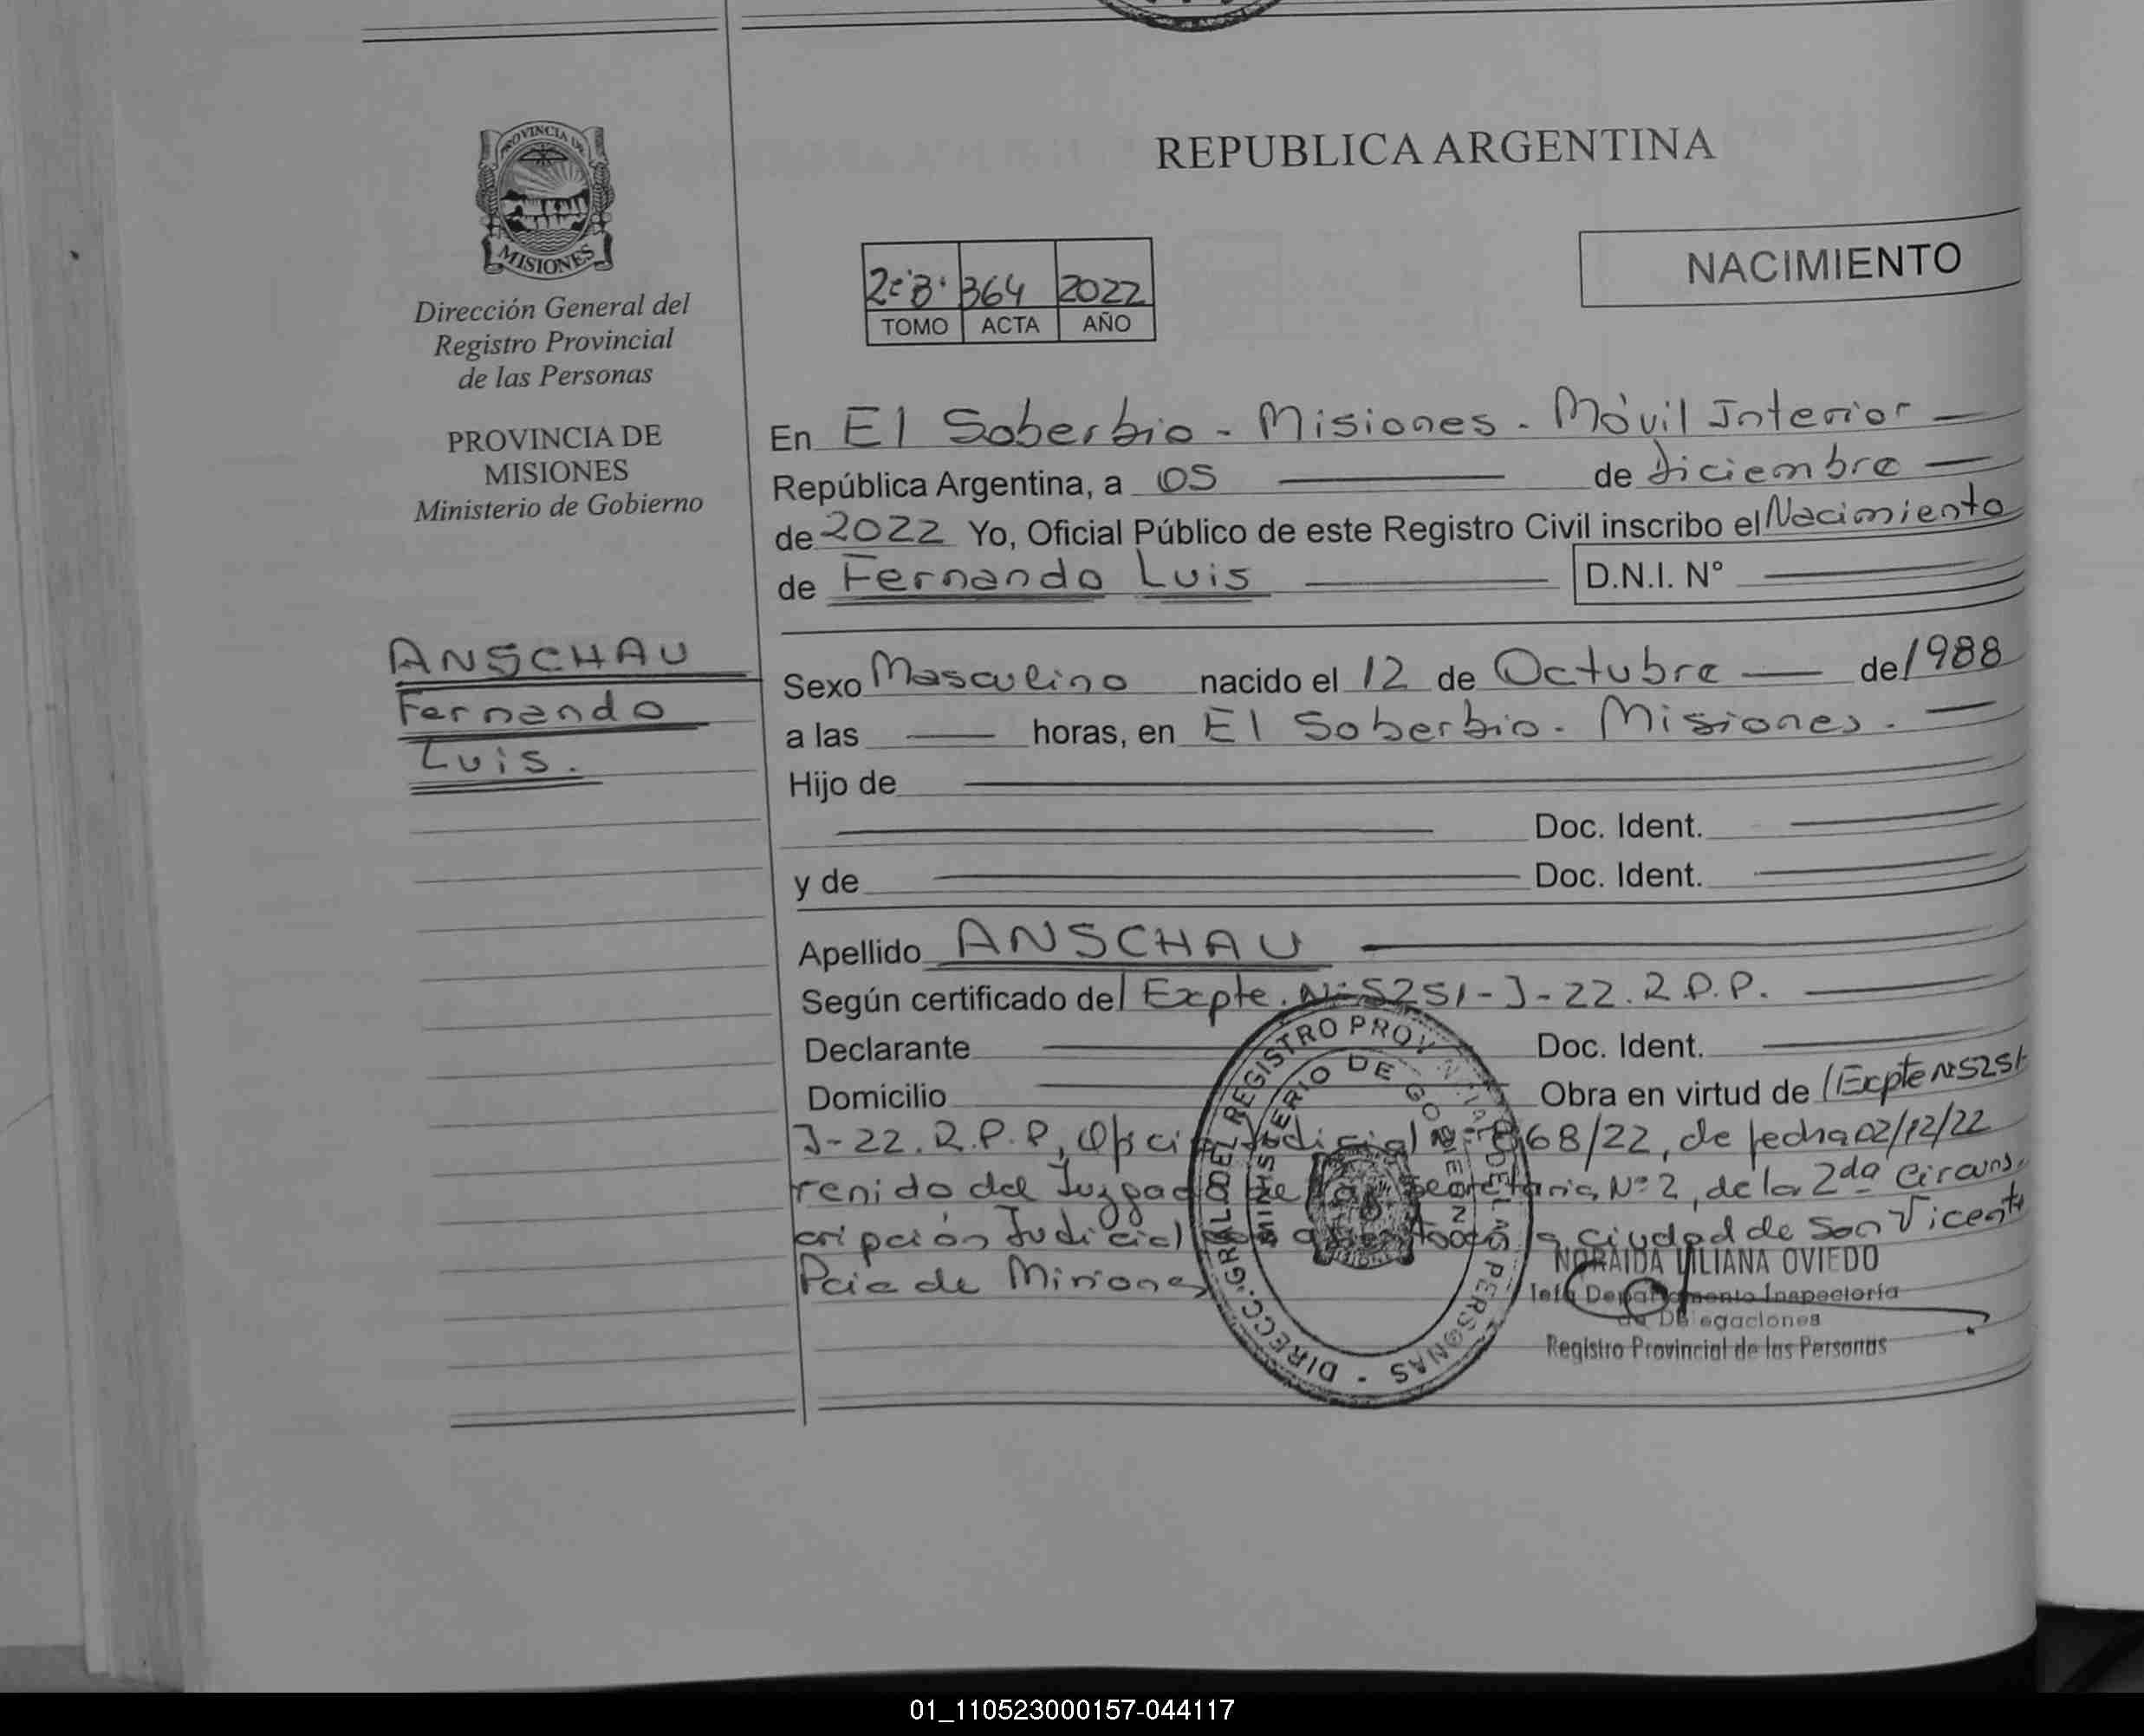 PROVINCIA DE
MISIONES
Dirección General del
Registro Provincial
de las Personas
PROVINCIA DE
MISIONES
Ministerio de Gobierno
ANSCHAU
Fernando
Luis.
REPUBLICA ARGENTINA
NACIMIENTO
364 2022
TOMO ACTA AÑO
En El Soberbio - Misiones - Móvil Interior
República Argentina, a 05 de diciembre
de 2022 Yo, Oficial Público de este Registro Civil inscribo el Nacimiento
de Fernando Luis D.N.I. Nº
Sexo Masculino nacido el 12 de Octubre de 1988
a las horas, en El Soberbio. Misiones.
Hijo de
Doc. Ident.
y de Doc. Ident.
Apellido ANSCHAU
Según certificado de Expte. Nº 5251-J-22. R.P.P.
Declarante Doc. Ident.
Domicilio Obra en virtud de Expte Nº 5251
J-22. R.P.P, Oficio Judicial 68/22, de fecha 02/12/22
renido del Juzgado Secretaria Nº 2, de la 2da Circuns
cripción Judicial ciudad de San Vicente
Pcia de Misiones
DIRECC. GRAL. DEL REGISTRO PROVINCIAL DE LAS PERSONAS
MINISTERIO DE GOBIERNO
NORAIDA LILIANA OVIEDO
Jefa Departamento Inspectoría
de Delegaciones
Registro Provincial de las Personas
01_110523000157-044117